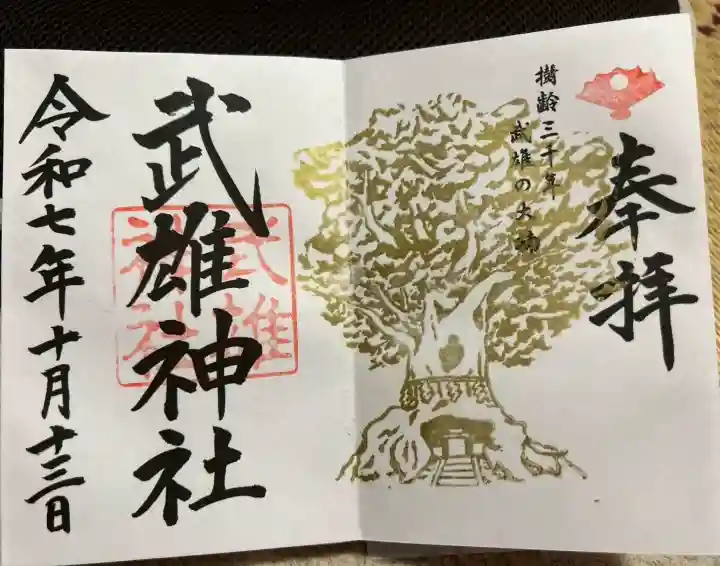 奉拝
樹齢三千年
武雄の大楠
武雄神社
武雄神社
令和七年十月十三日